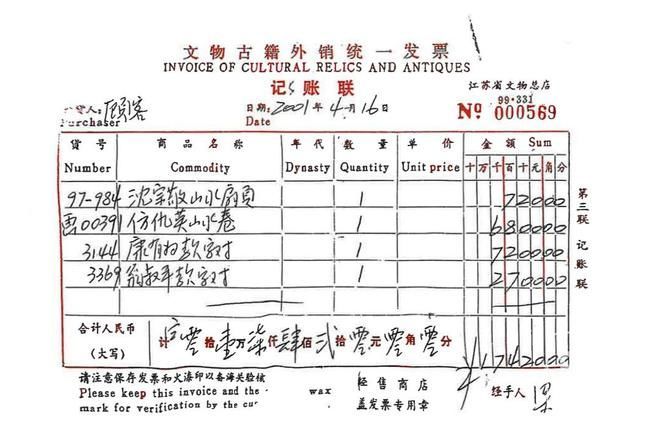 文物古籍外销统一发票
INVOICE OF CULTURAL RELICS AND ANTIQUES
记账联
江苏省文物总店
99·331
货人: 顾客
Purchaser
日期: 2001年4月16日
Date
№ 000569
货号 商品名称 年代 数量 单价 金额 Sum
Number Commodity Dynasty Quantity Unit price 十万千百十元角分
97-984 沈宗敬山水扇页 1 72000
曹00391 仿仇英山水卷 1 680000
3144 康有为款字对 1 720000
3369 翁叔平款字对 1 270000
第三联 记账联
合计人民币
(大写)
计 零拾壹万柒仟肆佰贰拾零元零角零分 ¥1742000
请注意保存发票和火漆印以备海关检核
Please keep this invoice and the wax
mark for verification by the cus
经售商店
盖发票专用章
经手人 梁